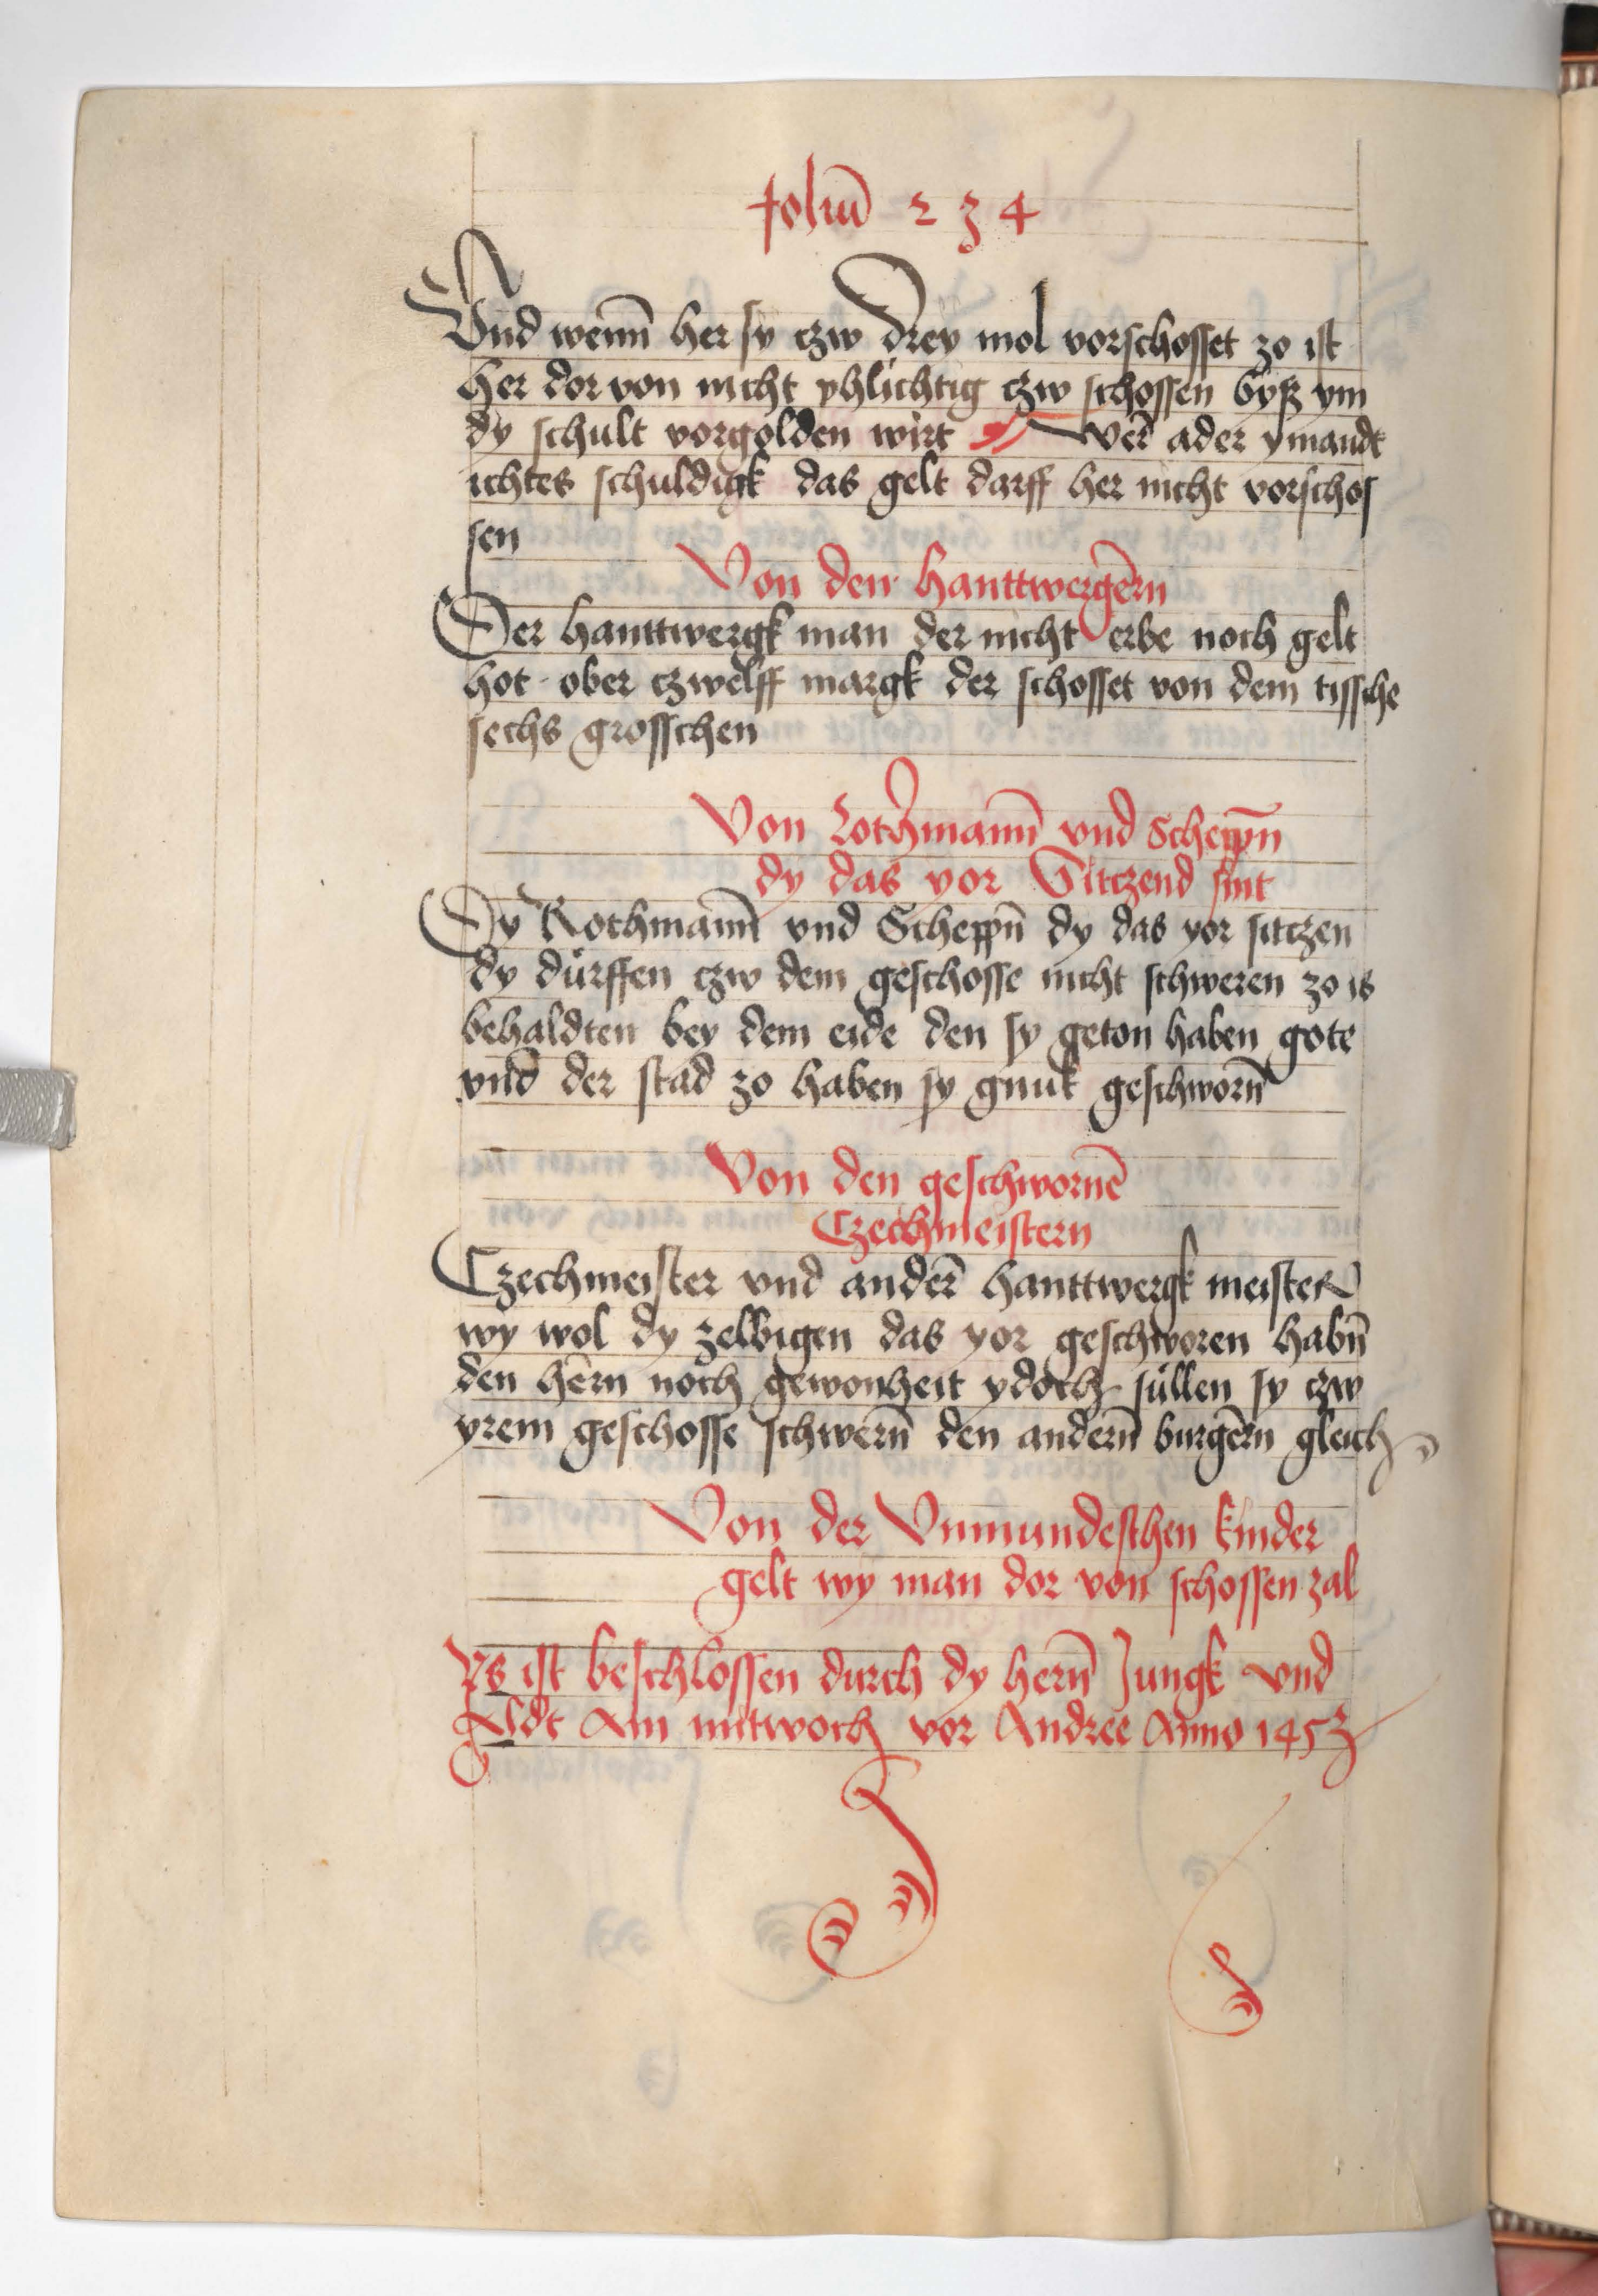 foliū 234
Vnd wenn̄ her sy czw drey mol vorschosset zo ist
her dor von nicht phlichtig czw schossen byß ym
dy schult vorgolden wirt Wer̄ ader ymandt
ichtes schuldigk das gelt darff her nicht vorschos
sen
Von den hanttwergērn
Der hanttwergk man der nicht erbe noch gelt
hot ober czwelff margk der schosset von dem tissche
sechs grosschen
Von Rothmann̄ vnd Schepp̄n
dy das yor Sitczend sint
Dy Rothmann̄ vnd Scheppn̄ dy das yor sitczen
dy dürffen czw dem geschosse nicht schweren zo is
behaldten bey dem eide den sy geton haben gote
vnd̄ der stad zo haben sy gnuk geschworn̄
Von den geschwornē
Czechmeistern
Czechmeister vnd ander̄ hanttwergk meister
wy wol dy zelbigen das yor geschworen habn̄
den hērn noch gewonheit ydoch süllen sy czw
yrem geschosse schwern̄ den andern̄ burgērn gleich
Von der Vnmundeschen kinder
gelt wy man dor von schossen zal
Is ist beschlossen durch dy hern̄ Jungk vnd
Aldt Am mitwoch vor Andree Anno 1453